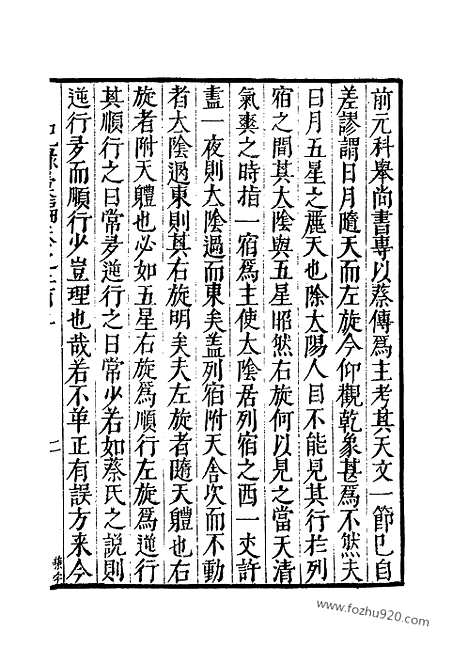 前元科舉尚書專以蔡傳爲主考其天文一節已自
差謬謂日月隨天而左旋今仰觀乾象甚爲不然夫
日月五星之麗天也除太陽人目不能見其行於列
宿之間其太陰與五星昭然右旋何以見之當天清
氣爽之時指一宿爲主使太陰居列宿之西一丈許
盡一夜則太陰過而東矣盖列宿附天舍次而不動
者太陰過東則其右旋明矣夫左旋者隨天體也右
旋者附天體也必如五星右旋爲順行左旋爲逆行
其順行之日常多逆行之日常少若如蔡氏之說則
逆行多而順行少豈理也哉若不革正有誤方來今
二
www.fozhu920.com